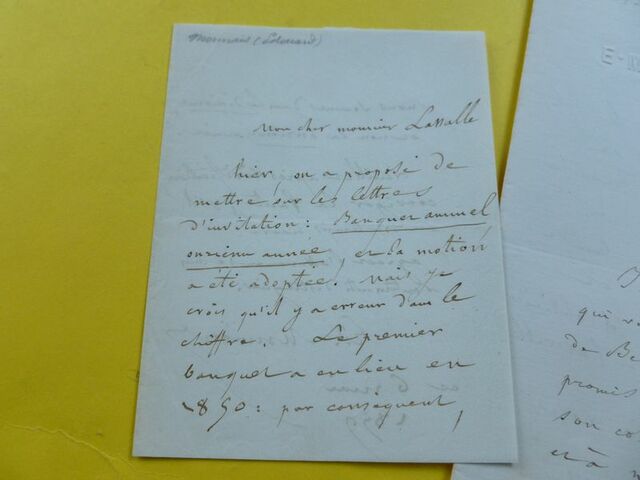 Monnais (Édouard)
Mon cher monsieur Lassalle
hier, on a proposé de
mettre sur les lettres
d'invitation : Banquet annuel
onzième année, et la motion
a été adoptée. Mais je
crois qu'il y a erreur dans le
chiffre. Le premier
banquet a eu lieu en
1850 : par conséquent,
qui v
de Be
promis
son co
et à